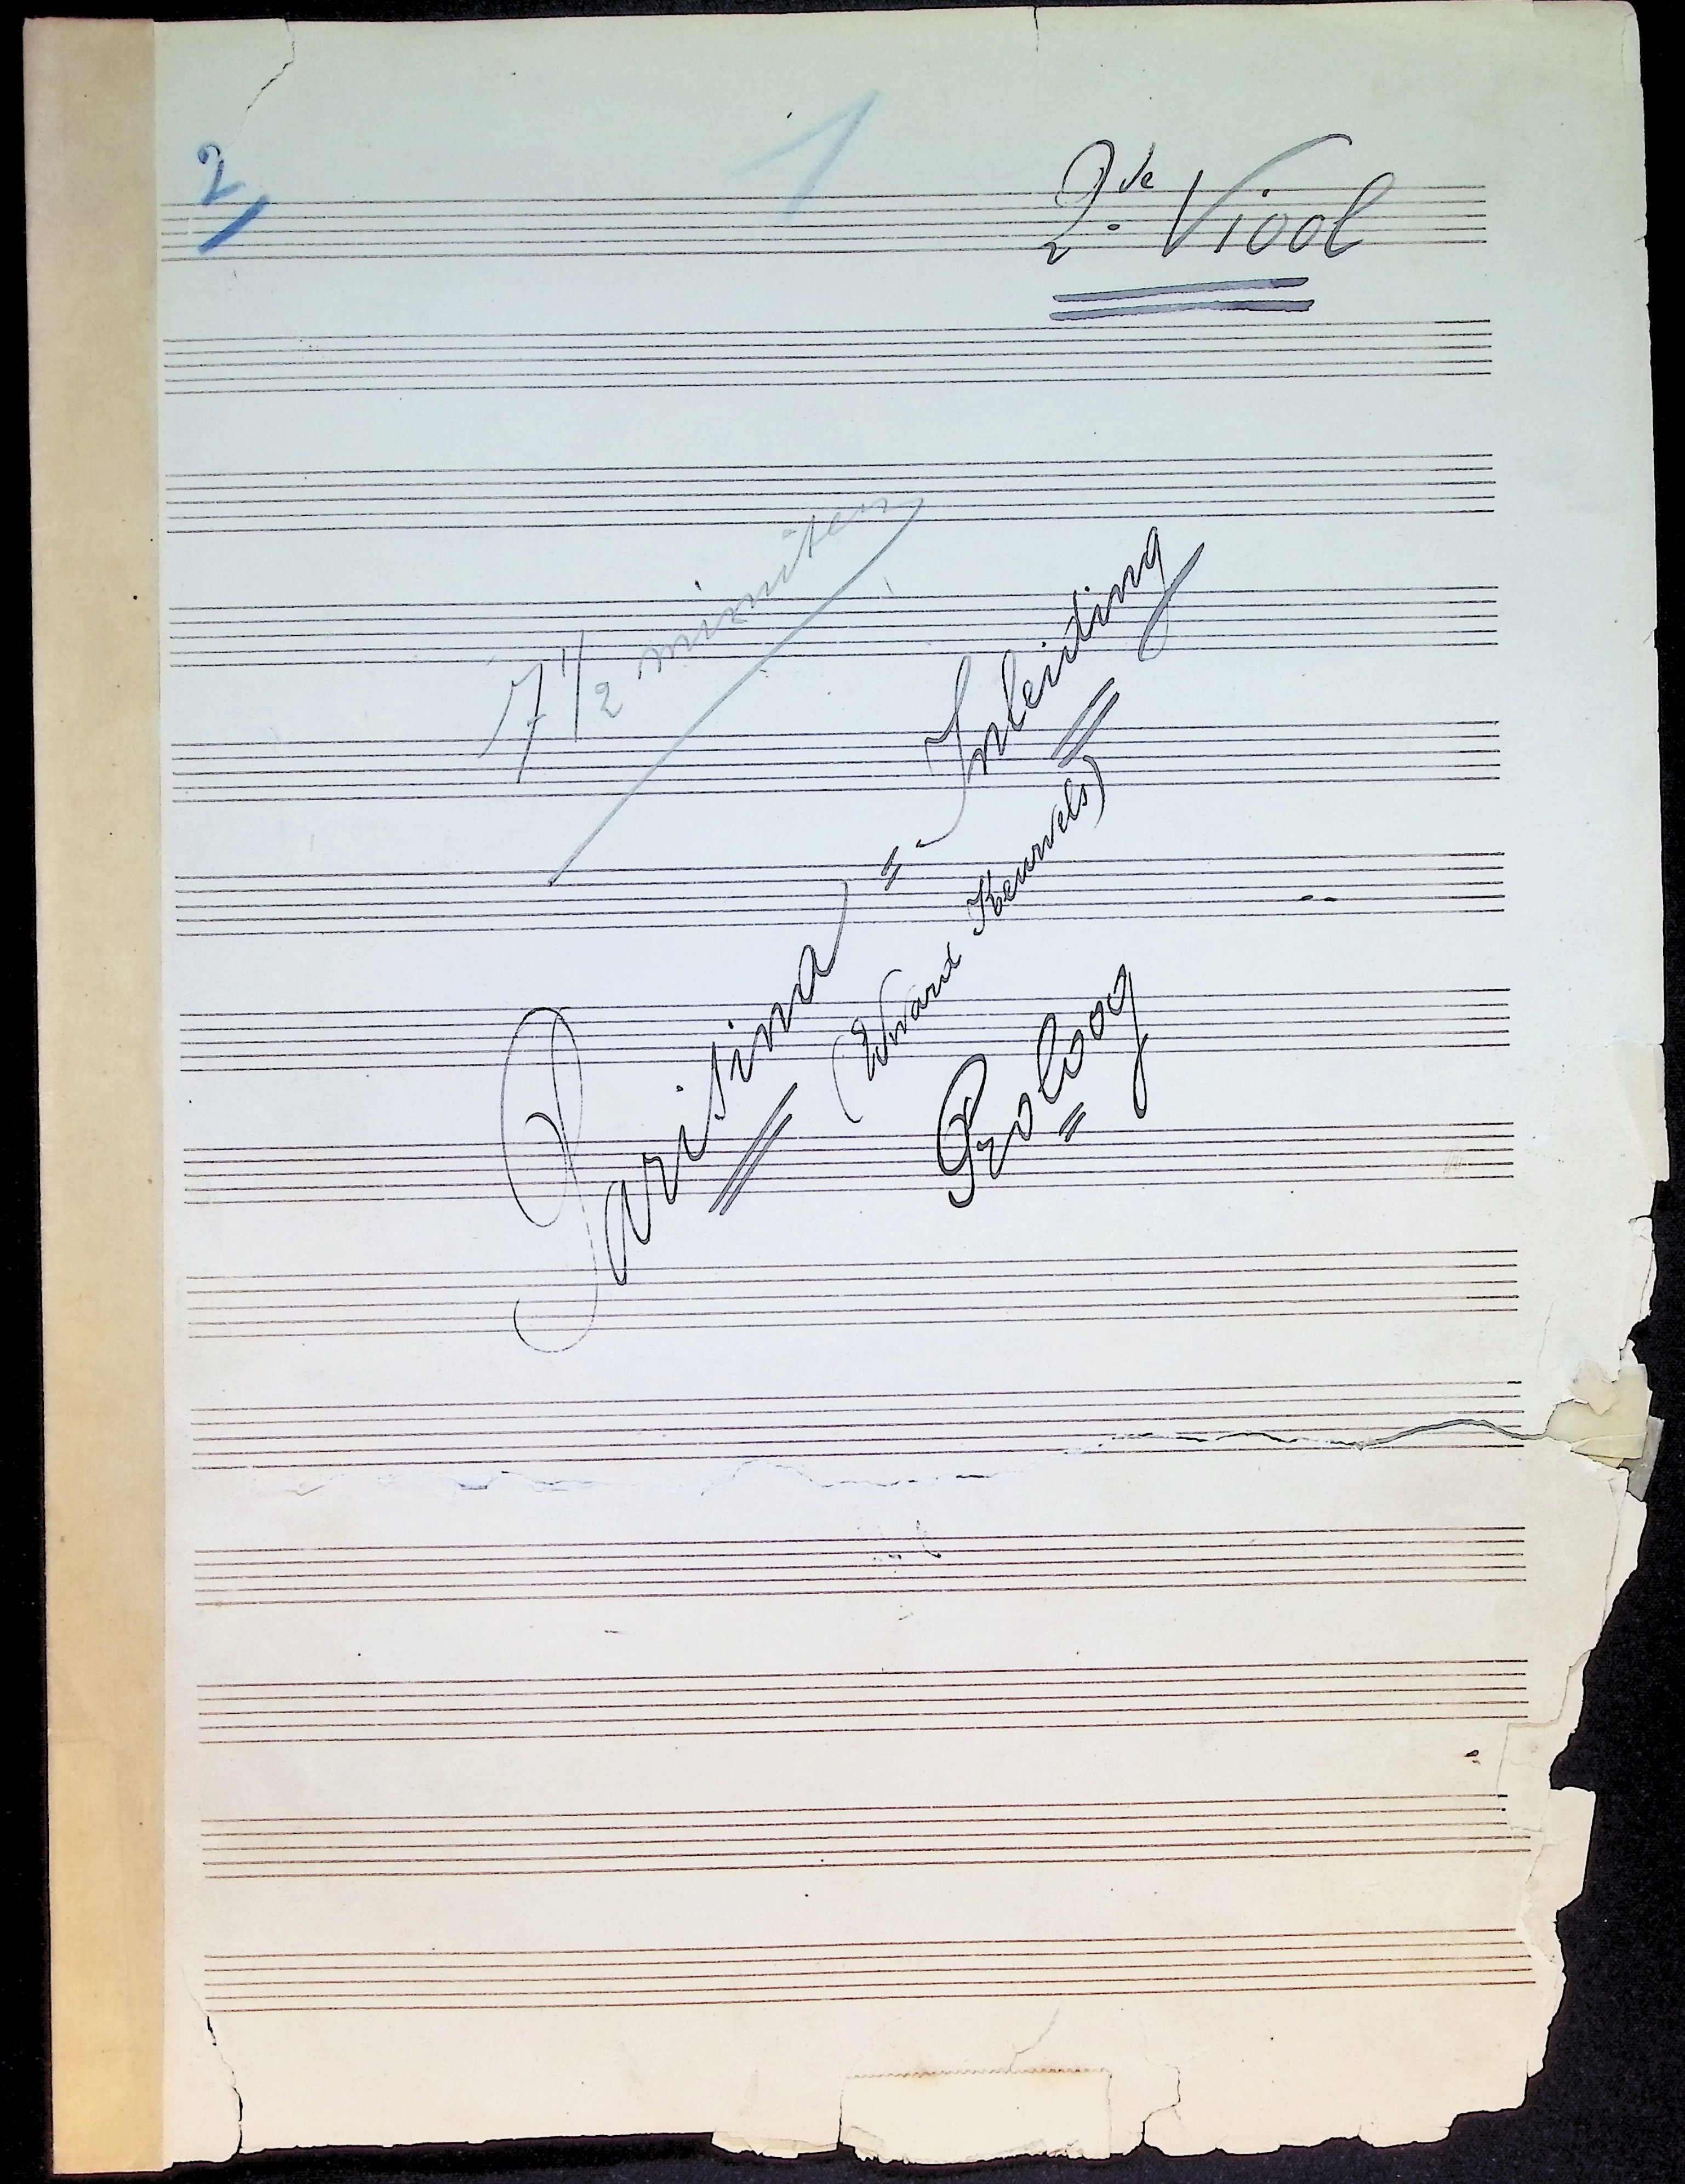 2
1
2de Viool
7 1/2 minuten
Parisina = Inleiding
(Edward Keurvels)
Proloog